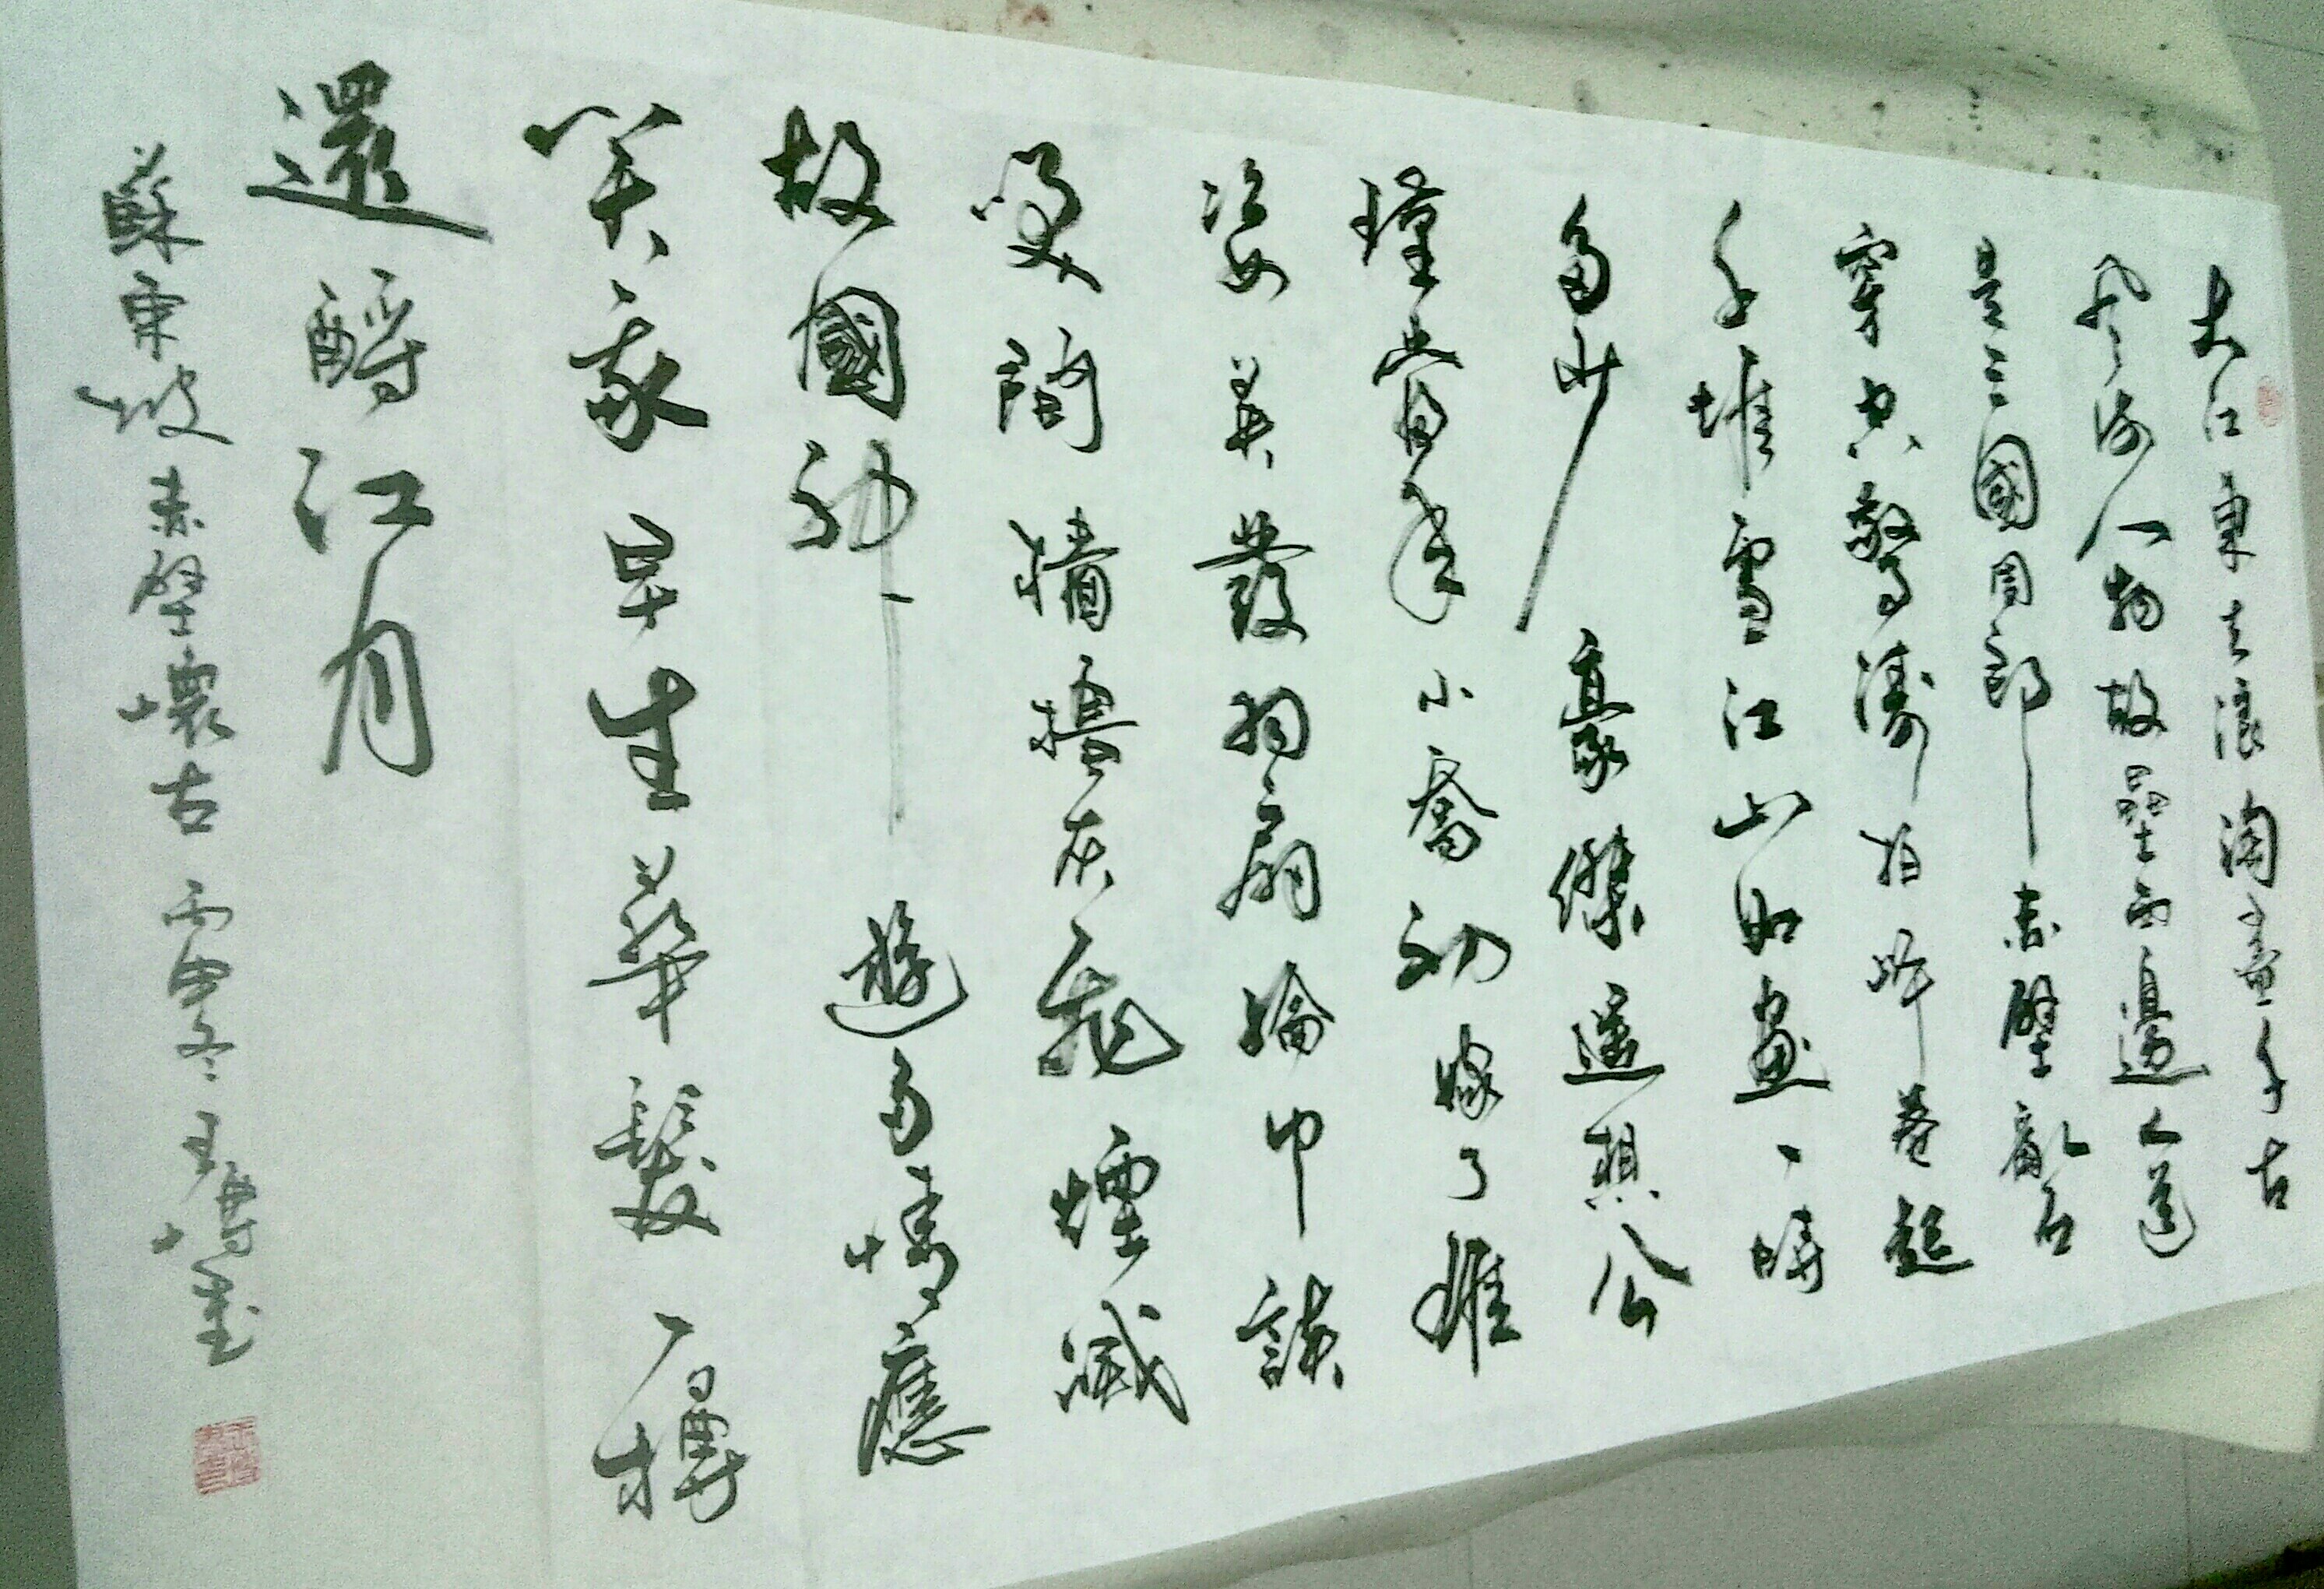 大江東去浪淘盡千古
風流人物故壘西邊人道
是三國周郎赤壁亂石
穿空驚濤拍岸卷起
千堆雪江山如畫一時
多少豪傑遙想公
瑾當年小喬初嫁了雄
姿英發羽扇綸巾談
笑間檣櫓灰飛煙滅
故國神遊多情應
笑我早生華髮一樽
還酹江月
蘇東坡赤壁懷古